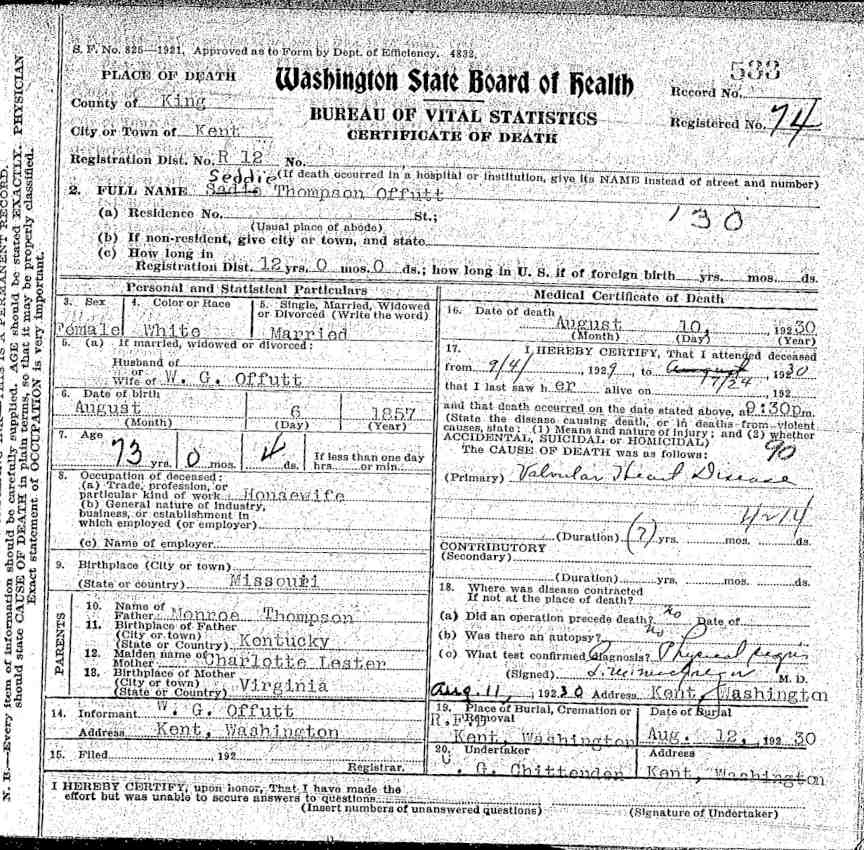 S. F. No. 825—1921. Approved as to Form by Dept. of Efficiency. 4832.
PLACE OF DEATH
Washington State Board of Health
533
Record No.
County of King
BUREAU OF VITAL STATISTICS
Registered No. 74
City or Town of Kent
CERTIFICATE OF DEATH
Registration Dist. No. R 12 No.
(If death occurred in a hospital or institution, give its NAME instead of street and number)
Seddie
2. FULL NAME Sadie Thompson Offutt
(a) Residence No. St.;
130
(Usual place of abode)
(b) If non-resident, give city or town, and state
(c) How long in
Registration Dist. 12 yrs. 0 mos. 0 ds.; how long in U. S. if of foreign birth yrs. mos. ds.
Personal and Statistical Particulars
3. Sex 4. Color or Race 5. Single, Married, Widowed
or Divorced (Write the word)
Female White Married
5. (a) If married, widowed or divorced:
Husband of
or
Wife of W. G. Offutt
6. Date of birth
August 6 1857
(Month) (Day) (Year)
7. Age
73 yrs. 0 mos. 4 ds. If less than one day
hrs. or min.
8. Occupation of deceased:
(a) Trade, profession, or
particular kind of work Housewife
(b) General nature of industry,
business, or establishment in
which employed (or employer)
(c) Name of employer
9. Birthplace (City or town)
(State or country) Missouri
PARENTS
10. Name of
Father Monroe Thompson
11. Birthplace of Father
(City or town)
(State or Country) Kentucky
12. Maiden name of
Mother Charlotte Lester
13. Birthplace of Mother
(City or town)
(State or Country) Virginia
14. Informant W. G. Offutt
Address Kent, Washington
15. Filed , 192
Registrar.
Medical Certificate of Death
16. Date of death
August 10, , 192 30
(Month) (Day) (Year)
17. I HEREBY CERTIFY, That I attended deceased
from 9/4/ , 1929, to August , 192 30
7/24
that I last saw h er alive on , 192
and that death occurred on the date stated above, at 9:30pm.
(State the disease causing death, or in deaths from violent
causes, state: (1) Means and nature of injury; and (2) whether
ACCIDENTAL, SUICIDAL or HOMICIDAL)
90
The CAUSE OF DEATH was as follows:
(Primary) Valvular Heart Disease
(Duration) (?) yrs. mos. ds.
CONTRIBUTORY
(Secondary)
(Duration) yrs. mos. ds.
18. Where was disease contracted
If not at the place of death?
(a) Did an operation precede death? no Date of
(b) Was there an autopsy? no
(c) What test confirmed diagnosis? Physical signs
(Signed) M. D.
Aug. 11, , 192 30 Address Kent, Washington
19. Place of Burial, Cremation or
Removal
Date of Burial
Kent, Washington Aug. 12, , 192 30
20. Undertaker Address
. G. Chittenden Kent, Washington
I HEREBY CERTIFY, upon honor, That I have made the
effort but was unable to secure answers to questions
(Insert numbers of unanswered questions)
(Signature of Undertaker)
N. B.—Every item of information should be carefully supplied. AGE should be stated EXACTLY. PHYSICIAN
should state CAUSE OF DEATH in plain terms, so that it may be properly classified.
Exact statement of OCCUPATION is very important.